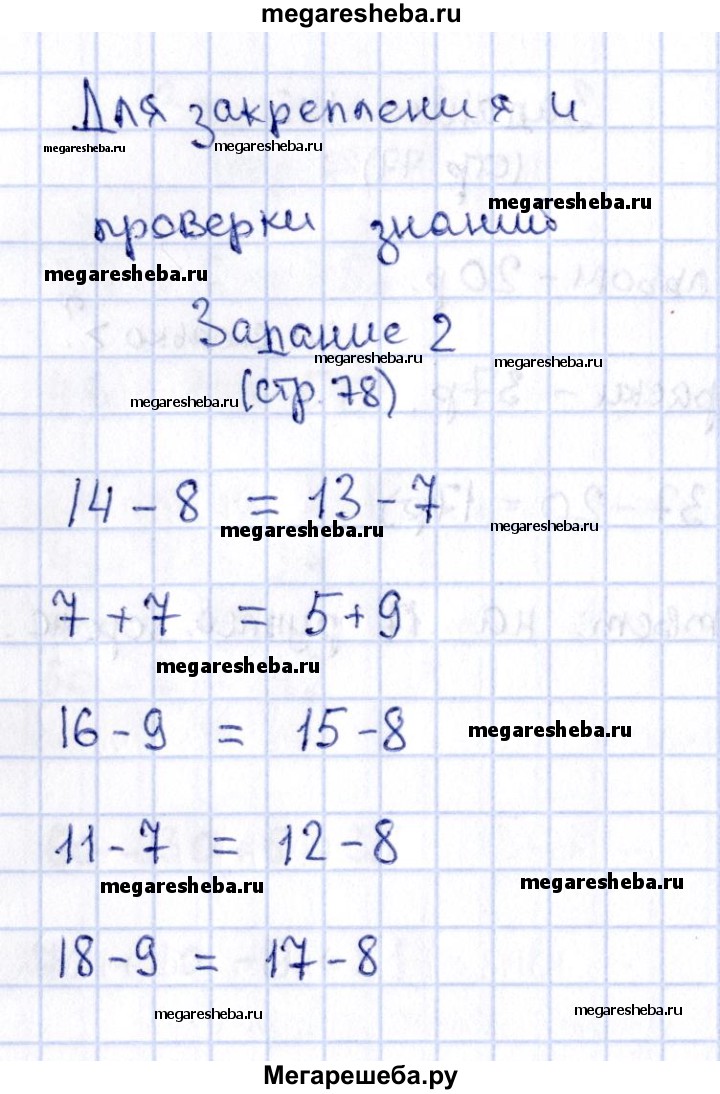 megaresheba.ru
Для закрепления и
megaresheba.ru megaresheba.ru
megaresheba.ru
проверки знаний
megaresheba.ru
Задание 2
megaresheba.ru megaresheba.ru
megaresheba.ru (стр. 78)
14 - 8 = 13 - 7
megaresheba.ru megaresheba.ru
7 + 7 = 5 + 9
megaresheba.ru
16 - 9 = 15 - 8 megaresheba.ru
11 - 7 = 12 - 8
megaresheba.ru megaresheba.ru
18 - 9 = 17 - 8
megaresheba.ru megaresheba.ru
Мегарешеба.ру